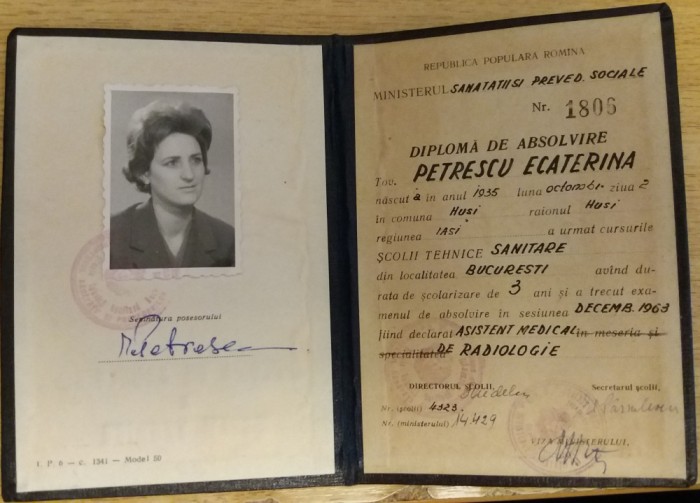 Semnătura posesorului
I. P. 8 — c. 1341 — Model 50
REPUBLICA POPULARA ROMINA
MINISTERUL SANATATII SI PREVED. SOCIALE
Nr. 1806
DIPLOMĂ DE ABSOLVIRE
Tov. PETRESCU ECATERINA
născut ă în anul 1935 luna octombr. ziua 2
în comuna Husi raionul Husi
regiunea IASI a urmat cursurile
ȘCOLII TEHNICE SANITARE
din localitatea BUCURESTI avînd du-
rata de școlarizare de 3 ani și a trecut exa-
menul de absolvire în sesiunea DECEMB. 1963
fiind declarat ASISTENT MEDICAL în meseria și
specialitatea DE RADIOLOGIE
DIRECTORUL ȘCOLII, Secretarul școlii,
Nr. (școlii) 4323.
Nr. (ministerului) 14429
VIZA MINISTERULUI,